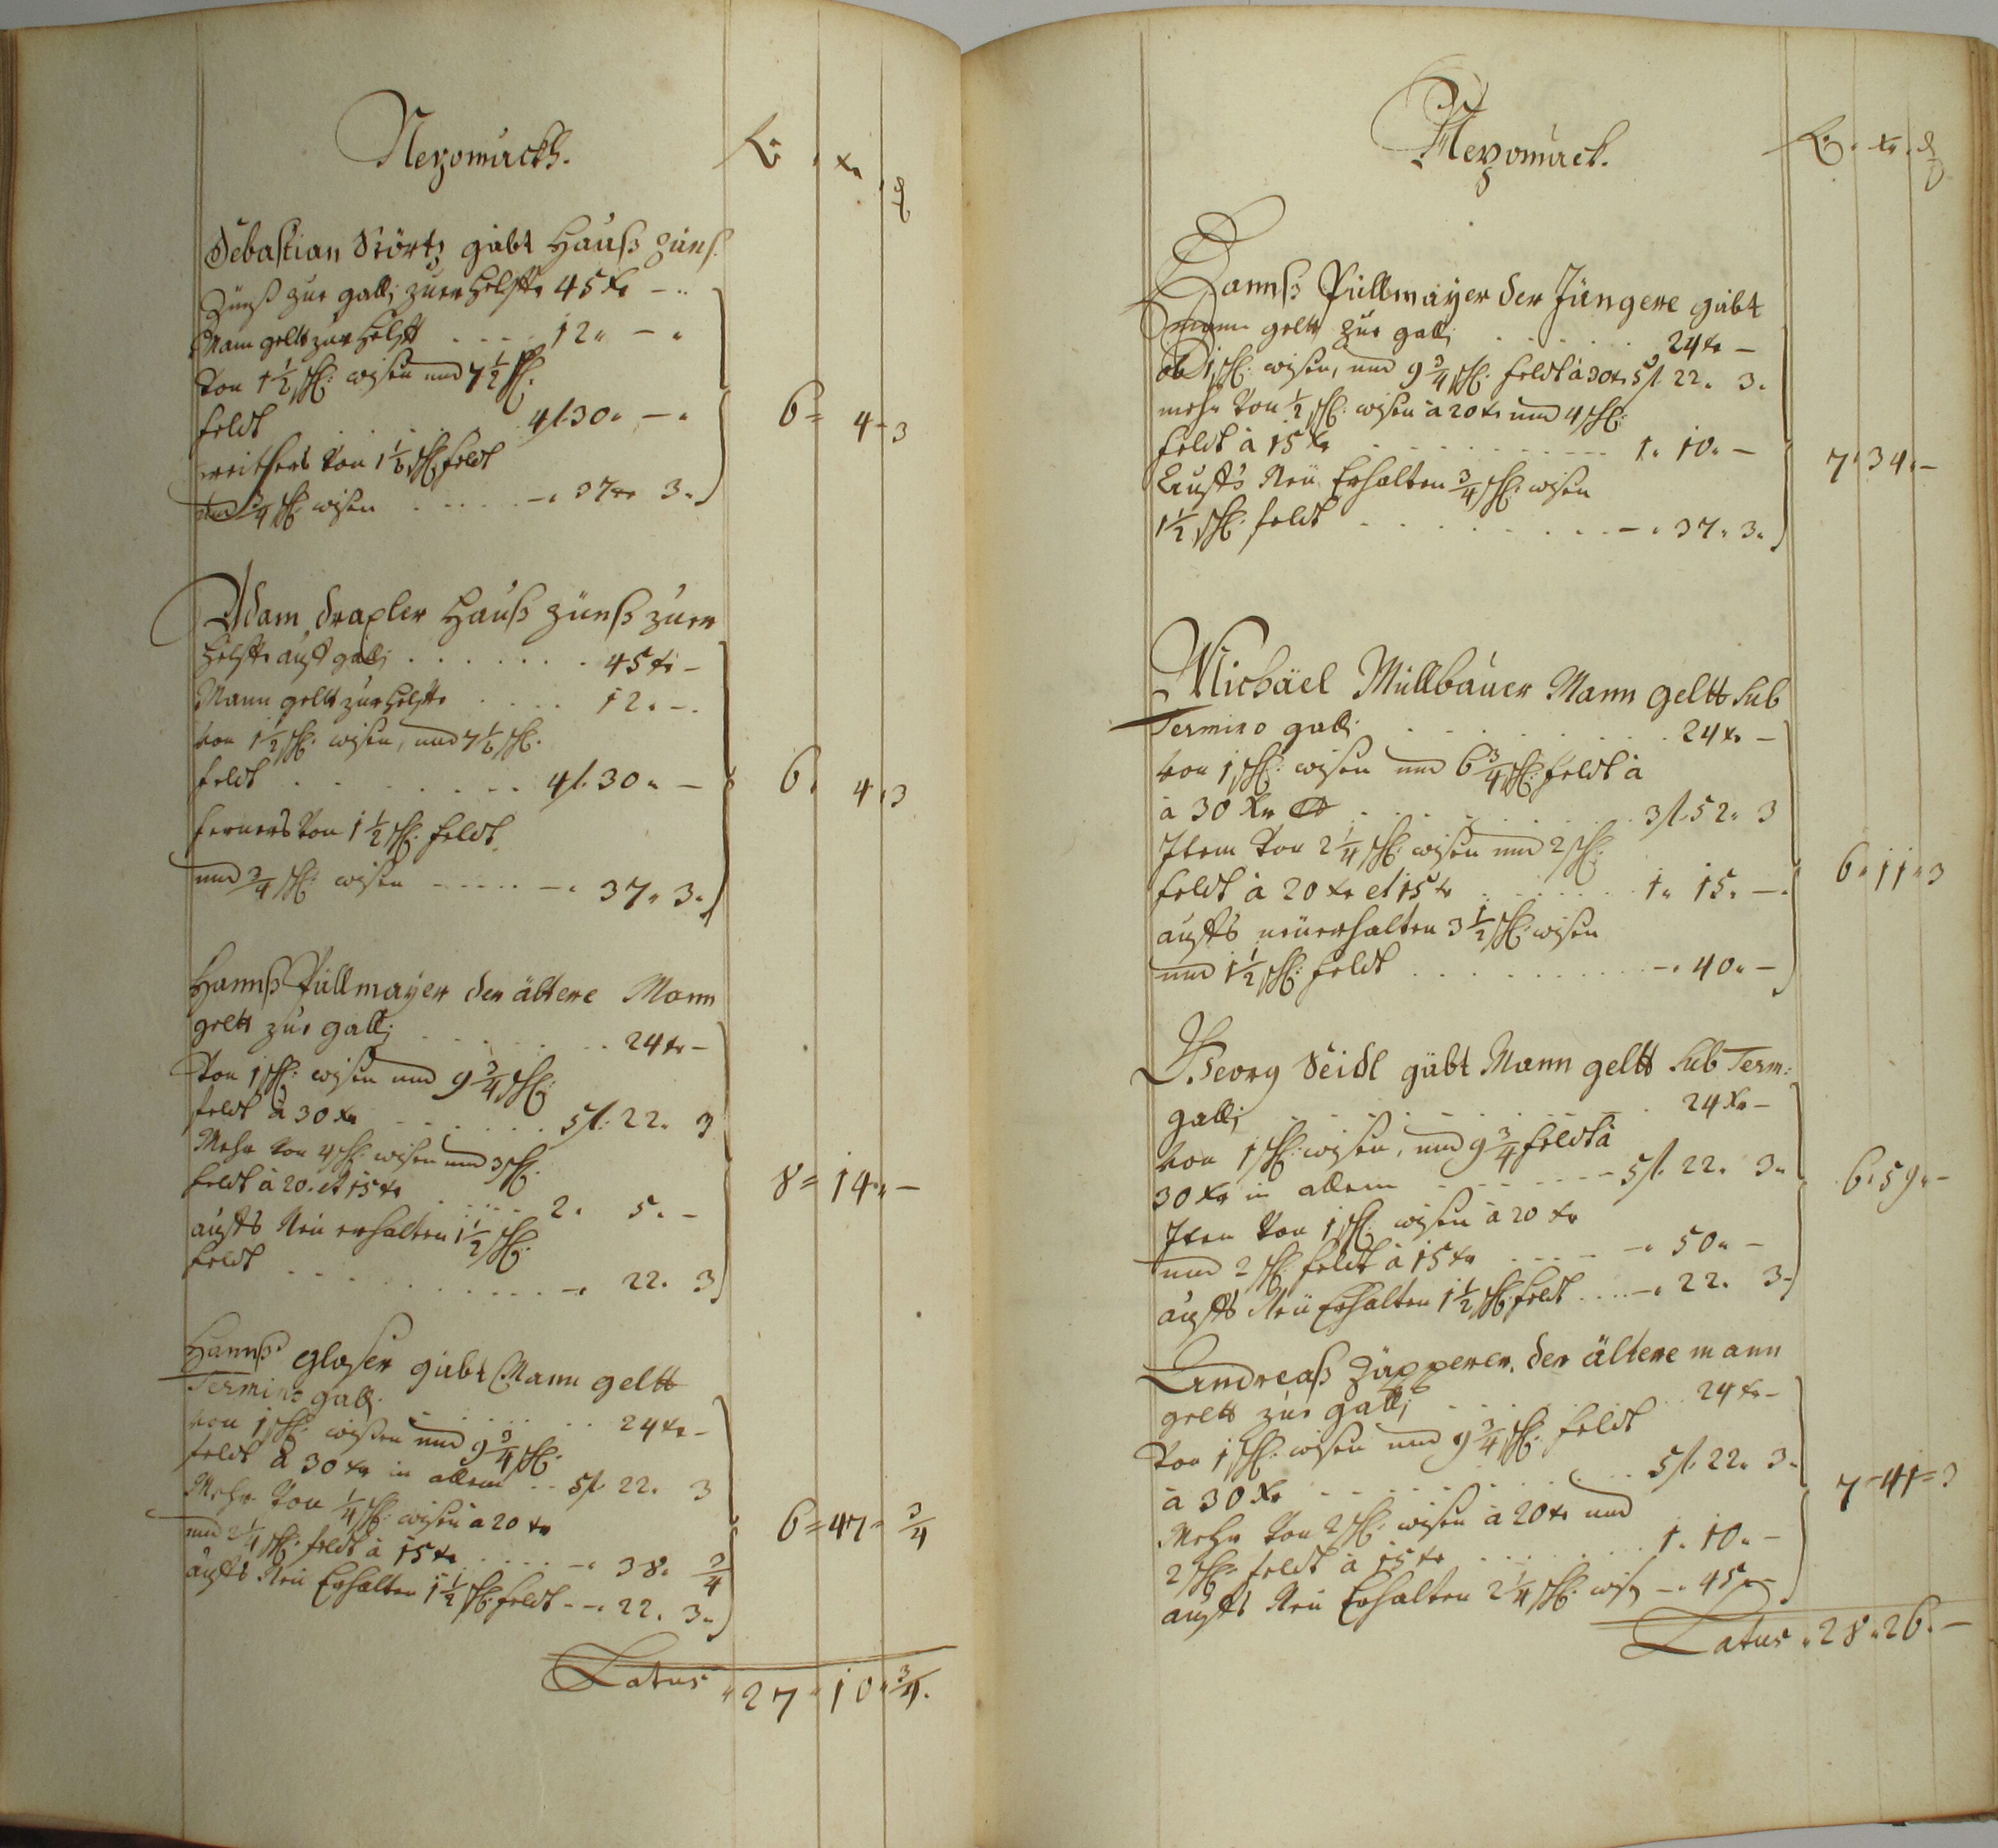 Nepomuckh.
fl. xr. ₰
Sebastian Körtz gübt Hauß Zünß
Zünß zur galli zuer Helffte 45 xr —
Mann geltt zur Helfft . . . . 12 . — .
Von 1 1/2 schl: wisen und 7 1/2 schl:
feldt . . . . . 4 fl. 30 . — .
weithers von 1 1/2 schl feldt
und 3/4 schl: wisen . . . . — . 37 xr 3 .
6 = 4 - 3
Adam Draxler Hauß Zünß zuer
Helffte auff galli . . . . . . . 45 xr —
Mann geltt zur Helffte . . . . 12 . — .
Von 1 1/2 schl: wisen, und 7 1/2 schl:
feldt . . . . . . . 4 fl. 30 . —
ferners von 1 1/2 schl: feldt
und 3/4 schl: wisen - - - - - — . 37 . 3 .
6 . 4 . 3
Hannß Püllmayer der ältere Mann
geltt zur galli . . . . . . . 24 xr —
Von 1 schl: wisen und 9 3/4 schl:
feldt à 30 xr . . . . . . 5 fl: 22 . 3
Mehr von 4 schl: wisen und 3 schl:
feldt à 20 . et 15 xr . . . . . 2 . 5 . —
auffs Neu erhalten 1 1/2 schl:
feldt . . . . . . . . . — . 22 . 3
8 = 14 . —
Hannß glaser gübt Mann geltt
Termino galli . . . . . . . 24 xr —
von 1 schl: wisen und 9 3/4 schl:
feldt à 30 xr in allem . . 5 fl. 22 . 3
Mehr von 1/4 schl: wisen à 20 xr
und 2 1/4 schl: feldt à 15 xr . . . . — . 38 . 3/4
auffs Neu Erhalten 1 1/2 schl: feldt - — . 22 . 3 .
6 = 47 = 3/4
Latus . 27 . 10 . 3/4 .
Nepomuck.
fl. xr. ₰
Hannß Püllmayer der Jüngere gübt
mann geltt zur galli . . . . . . 24 xr —
ab 1 schl: wisen, und 9 3/4 schl: feldt à 30 xr 5 fl. 22 . 3 .
mehr von 1/2 schl: wisen à 20 xr und 4 schl:
feldt à 15 xr . . . . . . . . . 1 . 10 . —
Auffs Neu Erhalten 3/4 schl: wisen
1 1/2 schl: feldt . . . . . . . . — . 37 . 3 .
7 . 34 . —
Michäel Müllbauer Mann geltt sub
Termino galli . . . . . . . 24 xr —
von 1 schl: wisen und 6 3/4 schl: feldt à
à 30 xr . . . . . . . . . 3 fl. 52 . 3
Item von 2 1/4 schl: wisen und 2 schl:
feldt à 20 xr et 15 xr . . . . . . 1 . 15 . — .
auffs neu erhalten 3 1/2 schl: wisen
und 1 1/2 schl: feldt . . . . . . . . . — . 40 . —
6 . 11 . 3
Georg Seidl gübt Mann geltt sub Term:
galli . . . . . . . . . 24 xr —
von 1 schl: wisen, und 9 3/4 feldt à
30 xr in allem - - - - - - 5 fl. 22 . 3 .
Item von 1 schl: wisen à 20 xr
und 2 schl: feldt à 15 xr . . . . — . 50 . —
auffs Neu Erhalten 1 1/2 schl: feldt . . . . — . 22 . 3 .
6 . 59 . —
Andreaß Zäpperer, der ältere mann
geltt zur galli . . . . . . . 24 xr —
von 1 schl: wisen und 9 3/4 schl: feldt
à 30 xr . . . . . . . . 5 fl. 22 . 3 .
Mehr von 2 schl: wisen à 20 xr und
2 schl: feldt à 15 xr . . . . . . 1 . 10 . —
auffs Neu Erhalten 2 1/4 schl: wisen — . 45 . —
7 - 41 = 3
Latus . 28 . 26 . —